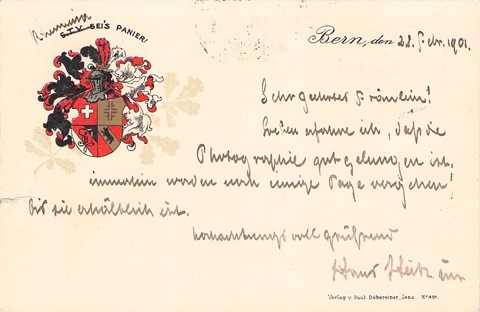 S.T.V. SEI'S PANIER!
Bern, den 22. Febr. 1901.
Sehr geehrtes Fräulein!
Soeben erfahre ich, daß die
Photographie gut gelungen ist.
immerhin werden noch einige Tage vergehen!
bis sie erhältlich ist.
hochachtungsvoll grüßend
Hans
Verlag v. Paul Döbereiner, Jena. No 491.